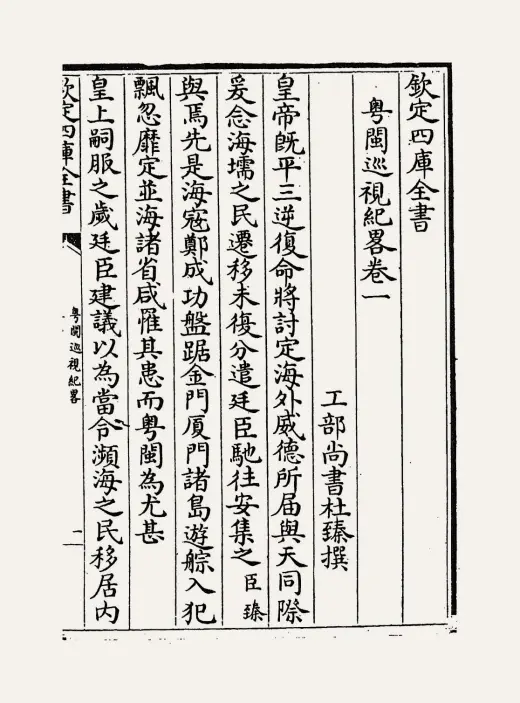 欽定四庫全書
粤閩巡視紀畧卷一
工部尚書杜臻撰
皇帝既平三逆復命將討定海外威德所届與天同際
爰念海壖之民遷移未復分遣廷臣馳往安集之臣臻
與焉先是海寇鄭成功盤踞金門厦門諸島遊䑸入犯
飄忽靡定並海諸省咸罹其患而粤閩為尤甚
皇上嗣服之歲廷臣建議以為當令瀕海之民移居内
欽定四庫全書
粤閩巡視紀畧
一